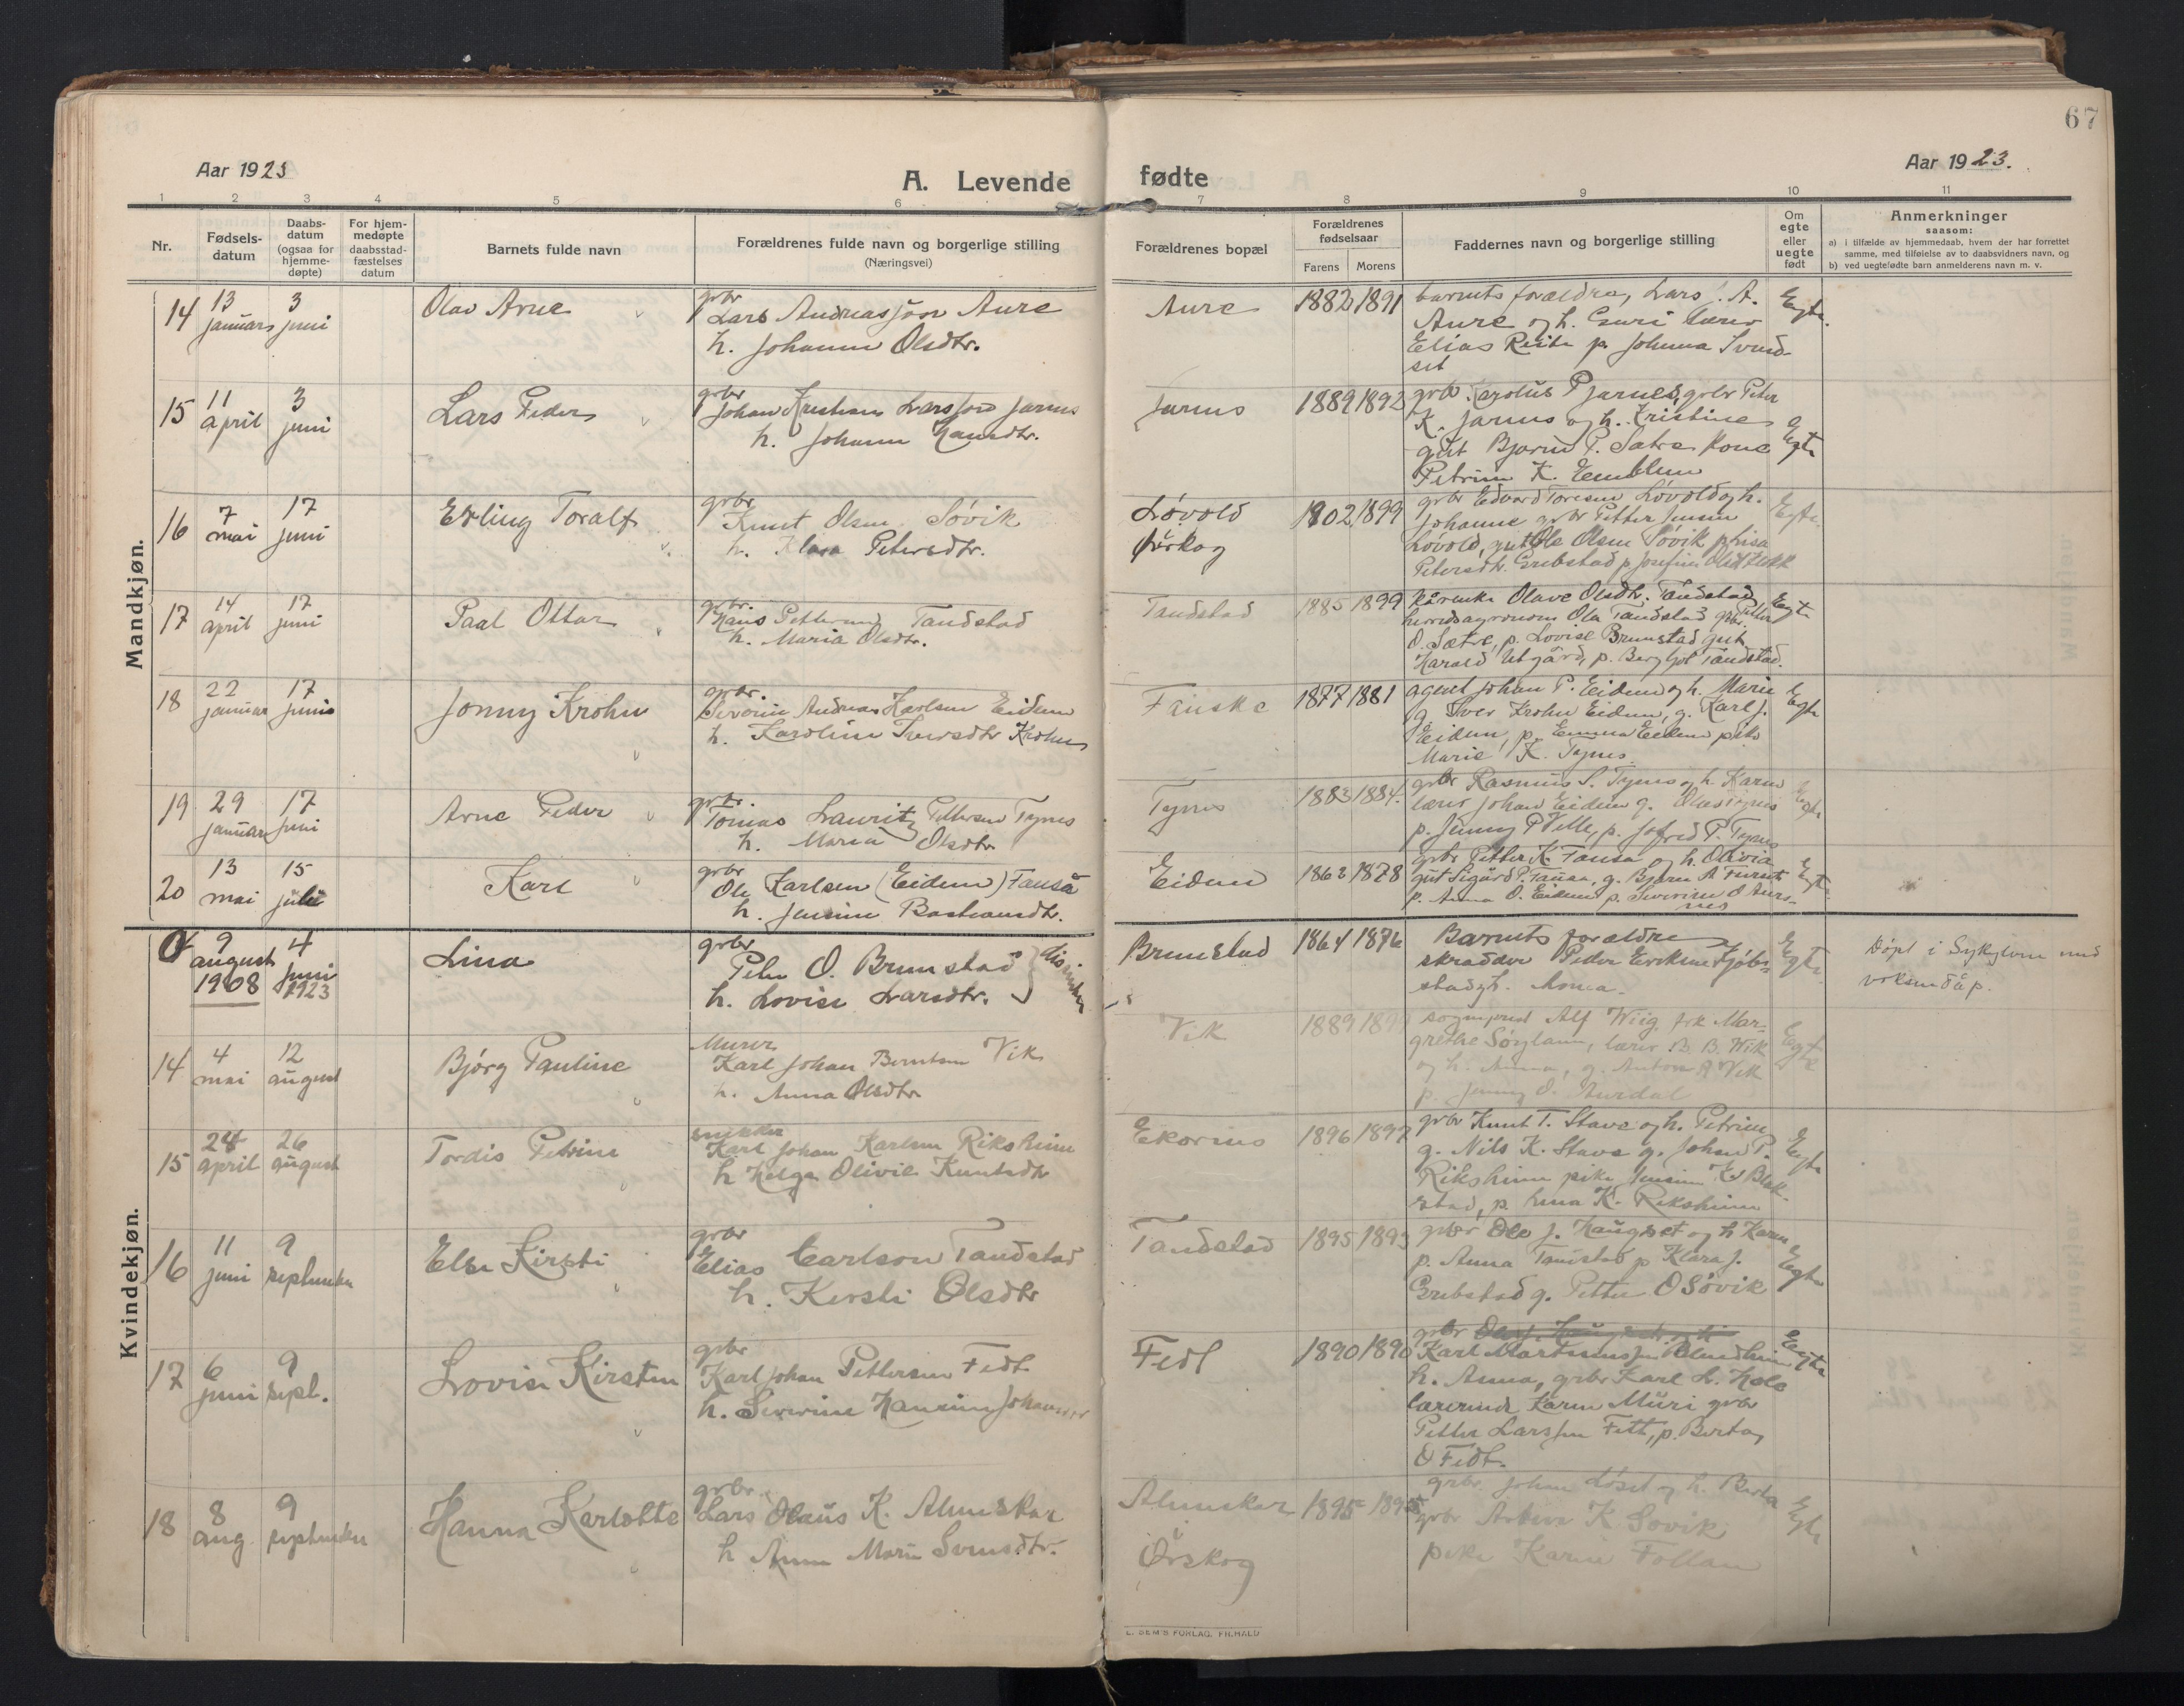 67
Aar 1923
A. Levende
fødte
Aar 1923.
1 2 3 4 5 6 7 8 9 10 11
Nr.
Fødsels-
datum
Daabs-
datum
(ogsaa for
hjemme-
døpte)
For hjem-
medøpte
daabsstad-
fæstelses
datum
Barnets fulde navn
Forældrenes fulde navn og borgerlige stilling
(Næringsvei)
Forældrenes bopæl
Forældrenes
fødselsaar
Farens Morens
Faddernes navn og borgerlige stilling
Om
egte
eller
uegte
født
Anmerkninger
saasom:
a) i tilfælde av hjemmedaab, hvem der har forrettet
samme, med tilføielse av to daabsvidners navn, og
b) ved uegtefødte barn anmelderens navn m. v.
Mandkjøn.
14 13 januar 3 juni
Olav Arne
grbr
Lars Andreas Aure
h. Johanne Olsdtr.
Aure
1882 1891
barnets forældre, Lars A.
Aure og h. Guri lærer
Elias p. Johanna Svend-
set
Egte.
15 11 april 3 juni
Lars Peder
grbr
Johan Kristian Larssen Jarnes
h. Johanne Hansdtr.
Jarnes
1889 1892
grbr Karolus P Jarnes, grbr Peter
K. Jarnes og h. Kristine
gut Bjarne P. Sætre kone
Petrine K. Emblem
Egte
16 7 mai 17 juni
Erling Toralf
grbr
Knut Olsen Søvik
h. Klara Petersdtr.
Løvold
Ørskog
1902 1899
grbr Edvard Toresen Løvold og h.
Johanne grbr Petter Jensen
Løvold, gut Ole Olsen Søvik p Lisa
Petersdtr. Grebstad p Josefine
Egte.
17 14 april 17 juni
Paal Ottar
grbr.
Hans Pettersen Tandstad
h. Maria Olsdtr.
Tandstad
1885 1899
Olave Olsdtr. Tandstad
herredsagronom Ola Tandstad grbr. Petter
O. Sætre, p. Lovise Brunstad gut
Harald Utgård, p. Bergljot Tandstad.
Egte
18 22 januar 17 juni
Jonny Krohn
grbr.
Severin Andreas Karlsen Eidem
h. Karoline Iversdtr Krohn
Fauske
1877 1881
agent Johan P. Eidem og h. Marie
g. Iver Krohn Eidem, g. Karl J.
Eidem, p. Emma Eidem pike
Marie K. Tynes.
Egte
19 29 januar 17 juni
Arne Peder
grbr.
Tomas Lauritz Pettersen Tynes
h. Maria Olsdtr
Tynes
1883 1884.
grbr Rasmus S. Tynes og h. Karen
lærer Johan Eidem g. Olav Tynes
p. Jenny P Velle, p. Jofrid P. Tynes
Egte
20 13 mai 15 juli
Karl
grbr
Ole Karlsen (Eidem) Tauså
h. Jensine Bastiansdtr.
Eidem
1863 1878
grbr Petter K. Tauså og h. Olivia
gut Sigurd P. Tausa, g. Bjarne A
p. Anna O. Eidem p. Severine O Aurs-
nes
Egte.
Kvindekjøn.
9 august 1908 4 juni 1923
Lina
grbr
Peter O. Brunstad
h. Lovise Larsdtr.
Brunstad
1864 1876
Barnets forældre
skrædder Peder Eriksen
stad og h. Mona.
Egte.
Døpt i Sykkylven med
voksendåp.
14 4 mai 12 august
Bjørg Pauline
Murer
Karl Johan Berntsen Vik
h. Anna Olsdtr
Vik
1889
sogneprest Alf Wiig, frk Mar-
grethe Sørgland, lærer B. B. Wik
og h. Anna, g. Anton A Vik
p. Jenny O. Aurdal
Egte
15 24 april 26 august
Tordis Petrine
snikker
Karl Johan Karlsen Riksheim
h Helga Olivie Knutsdtr
Ekornes
1896 1897
grbr Knut T. Stave og h. Petrine
g. Nils K. Stave g. Johan P.
Riksheim pike Jensine K Blak-
stad, p. K. Riksheim
Egte
16 11 juni 9 september
Else Kirsti
grbr
Elias Carlson Tandstad
h. Kirsti Olsdtr
Tandstad
1895 1893
grbr Ole J. Haugset og h Karen
p. Anna Tandstad p Klara J.
Grebstad g. Petter O Søvik
Egte
17 6 juni 9 sept.
Lovise Kirsten
grbr
Karl Johan Pettersen Fedt
h. Severine Hansine
Fedt
1890 1890
grbr
Karl Martinussen Blindheim
h. Anna, grbr Karl L. Hole
lærerinde Karen Muri grbr
Petter Larssen Fett, p. Berta
O Fedt.
Egte
18 8 aug 9 september
Hanna Karlotte
grbr.
Lars Olaus K. Almeskar
h Anne Marie Svensdtr.
Almeskar
Ørskog
1895 1895
grbr. Johan Løset og h. Berta
grbr K Søvik
pike Karen Follan
Egte
L. SEM'S FORLAG, FR.HALD